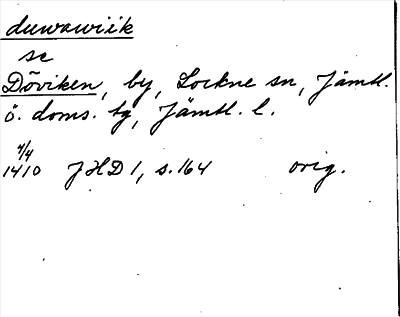 duwawiik
se
Döviken, by, Lockne sn, Jämtl.
ö. doms. tg, Jämtl. l.
4/4
1410 JHD 1, s. 164 orig.